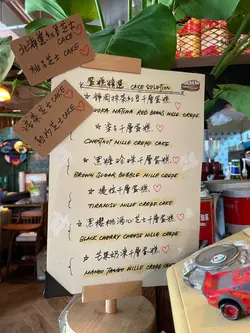 北海道
芝士
CAKE
柚子芝士
CAKE
芝士
CAKE
芝士 CAKE
蛋糕精選 CAKE SELECTION
靜岡抹茶紅豆千層蛋糕
MATCHA RED BEANS MILLE CREPE
栗子千層蛋糕
CHESTNUT MILLE CREPE CAKE
黑糖珍珠千層蛋糕
BROWN SUGAR BUBBLE MILLE CREPE
提拉米千層蛋糕
TIRAMISU MILLE CREPE CAKE
黑櫻桃流心芝士千層蛋糕
BLACK CHERRY CHEESE MILLE CREPE
芒果奶凍千層蛋糕
MANGO MILLE CREPE CAKE